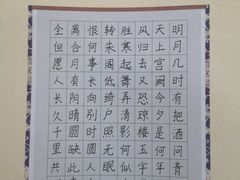 明月几时有把酒问青
天上宫阙今夕是何年
风归去又恐琼楼玉宇
胜寒起舞弄清影何似
转朱阁低绮户照无眠
恨何事长向别时圆人
离合月有阴晴圆缺此
全但愿人长久千里共